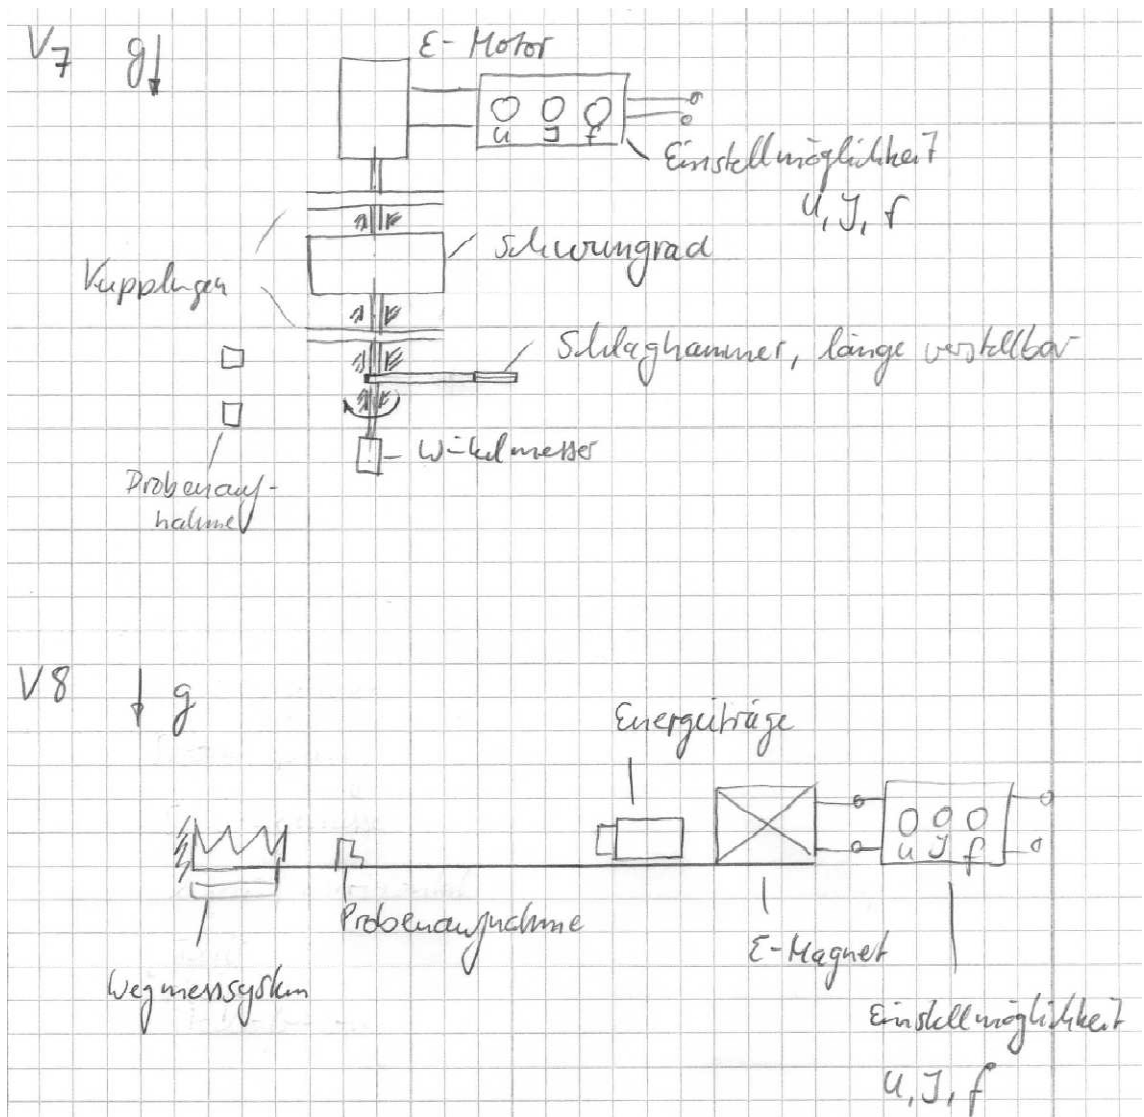 V7 g
E-Motor
U I f
Einstellmöglichkeit
U, I, f
Schwungrad
Kupplungen
Schlaghammer, länge verstellbar
Winkelmesser
Probenauf-
nahme
V8 g
Energieträge
U I f
Probenaufnahme
E-Magnet
Wegmesssystem
Einstellmöglichkeit
U, I, f